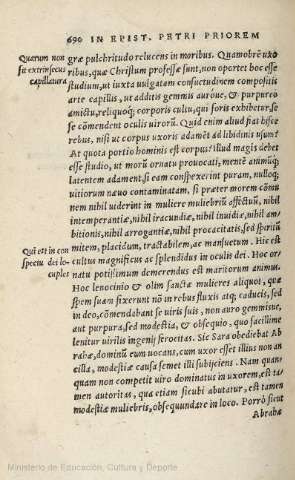 690 IN EPIST. PETRI PRIOREM
Quarum non
sit extrinsecus
capillatura
græ pulchritudo relucens in moribus. Quamobrē uxo
ribus, quæ Christum professæ sunt, non oportet hoc esse
studium, ut iuxta uulgatam consuetudinem compositis
arte capillis, ut additis gemmis auroue, & purpureo
amictu, reliquoq; corporis cultu, qui foris exhibetur, se
se cōmendent oculis uirorū. Quid enim aliud fiat hisce
rebus, nisi ut corpus uxoris adamēt ad libidinis usum?
At quota portio hominis est corpus? illud magis debet
esse studio, ut morū ornatu prouocati, mentē animūq;
latentem adament, si eam conspexerint puram, nulloq;
uitiorum næuo contaminatam. si præter morem cōmu
nem nihil uiderint in muliere muliebriū affectuū, nihil
intemperantiæ, nihil iracundiæ, nihil inuidiæ, nihil am-
bitionis, nihil arrogantiæ, nihil procacitatis, sed spiritū
mitem, placidum, tractabilem, ac mansuetum. Hic est
Qui est in con
spectu dei lo-
cuples
cultus magnificus ac splendidus in oculis dei. Hoc or-
natu potissimum demerendus est maritorum animus.
Hoc lenocinio & olim sanctæ mulieres aliquot, quæ
spem suam fixerunt nō in rebus fluxis atq; caducis, sed
in deo, cōmendabant se uiris suis, non auro gemmisue,
aut purpura, sed modestia, & obsequio, quo facillime
lenitur uirilis ingenij ferocitas. Sic Sara obediebat Ab
rahæ, dominū eum uocans, cum uxor esset illius non an
cilla, modestiæ causa semet illi subijciens. Nam quan-
quam non competit uiro dominatus in uxorem, est ta-
men autoritas, quæ etiam sicubi abutatur, est tamen
modestiæ muliebris, obsequundare in loco. Porrò sicut
Abrahæ
Ministerio de Educación, Cultura y Deporte